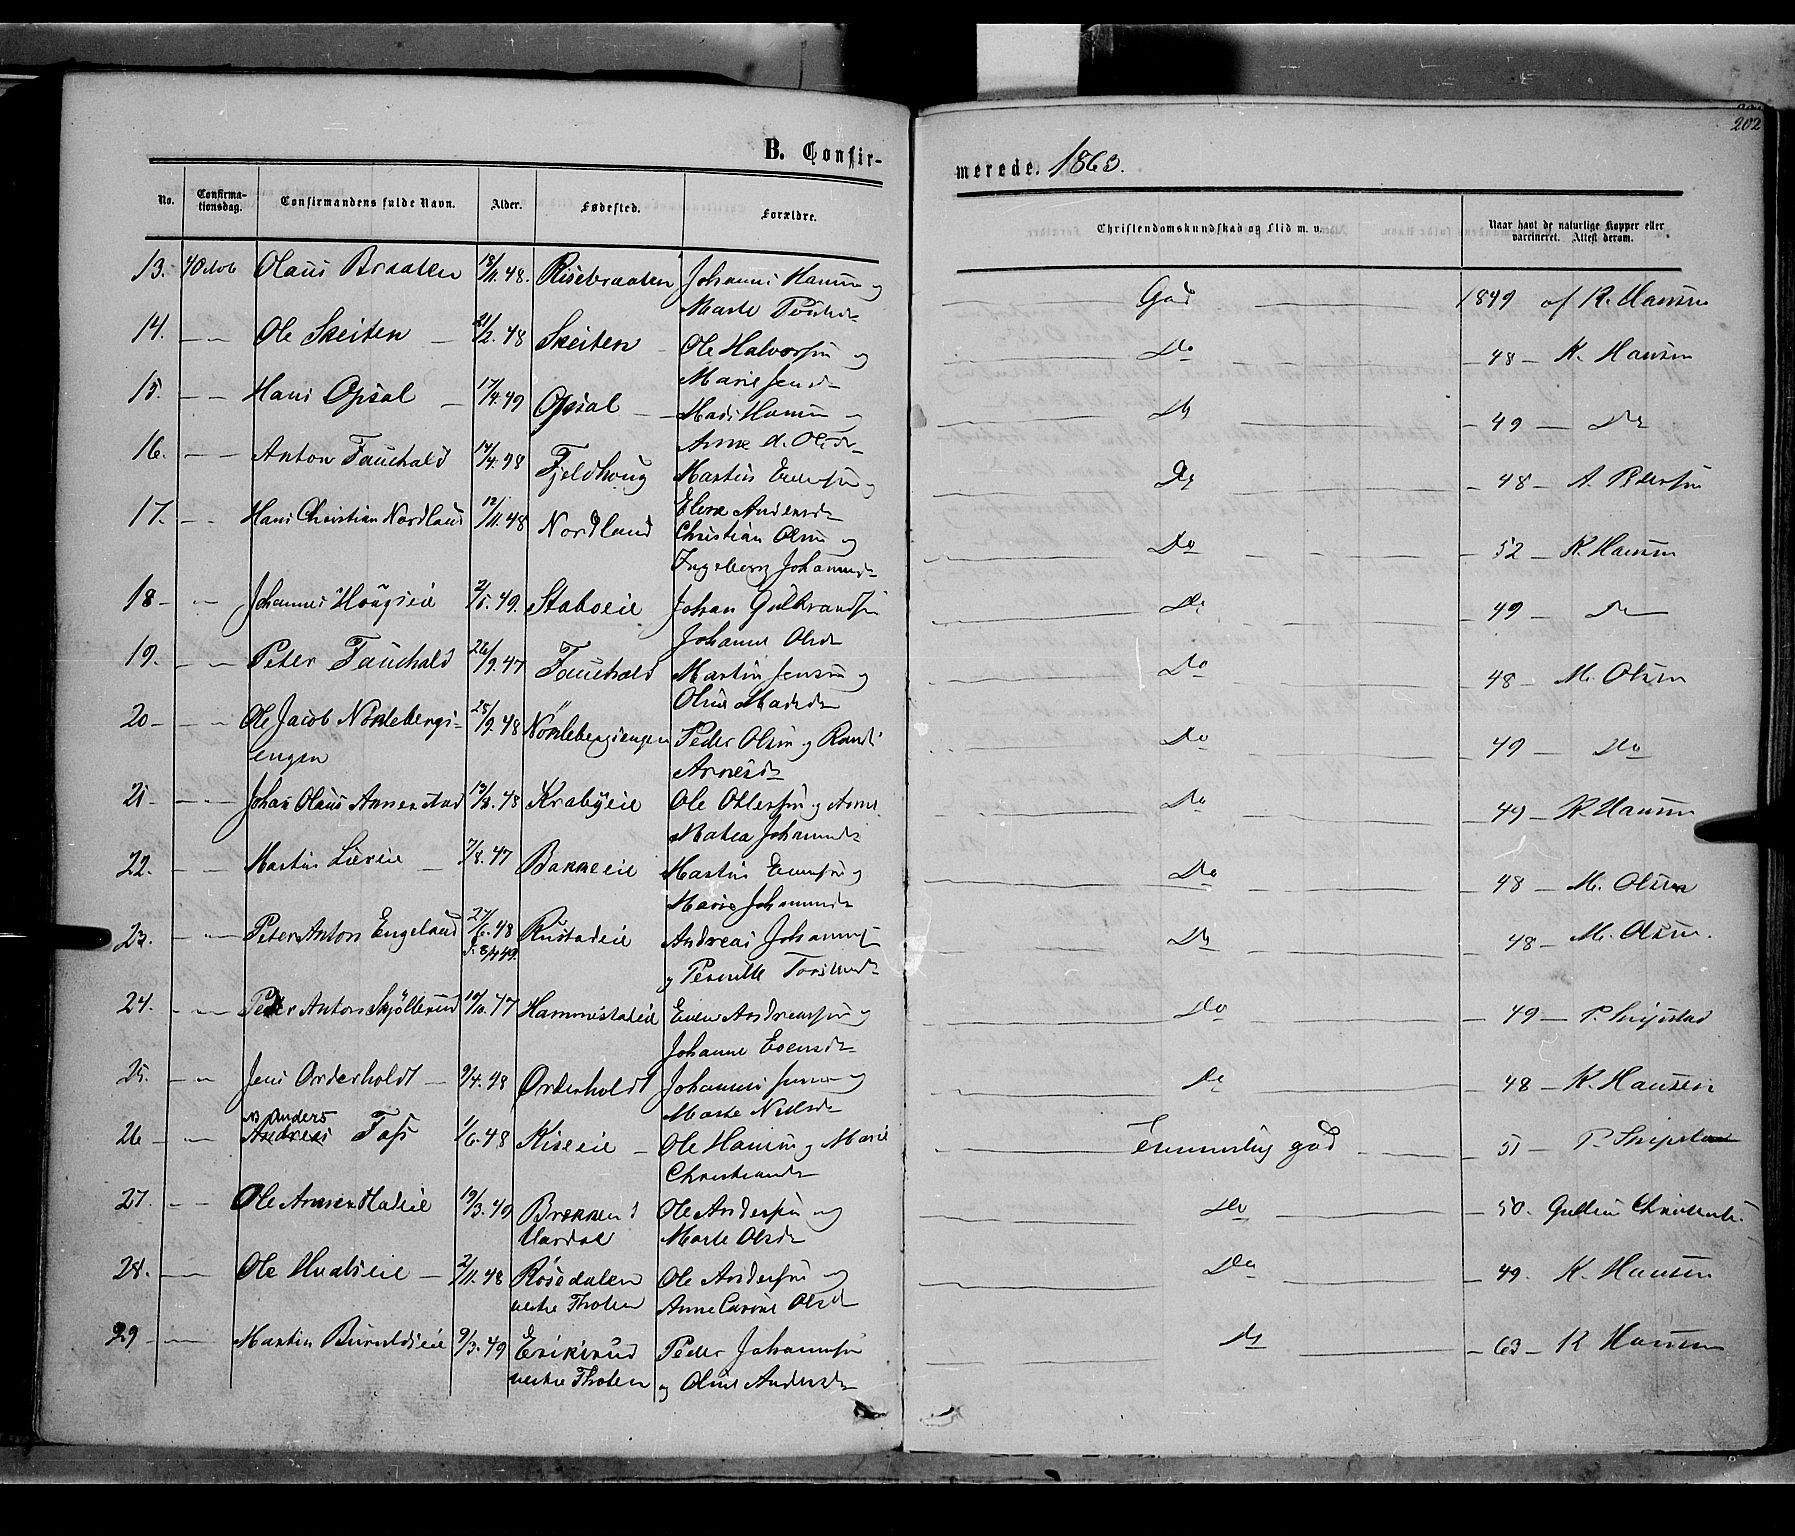 202
B. Confir-
merede. 1863.
No. Confirma-tionsdag. Confirmandens fulde Navn. Alder. Fødested. Forældre. Christendomskundskab og Flid m. v. Naar havt de naturlige Kopper eller vaccineret. Attest derom.
13. 4 Octob Olaus Braaten 18/11.48. Risebraaten Johannes Hansen og God 1849 af K. Hansen
Marte
14. - - Ole Skeiten 21/2.48 Skeiten Ole Halvorsen og Do 48 - K. Hansen
Marie Jensd
15. - - Hans Opsal 17/4.49 Opsal Mads Hansen og Do 49 - Do
Anne d. Olsd
16. - - Anton Fauchald 14/4.48 Fjeldhoug Martius Evensen og Do - 48 - A. Pedersen
Elene Andersd
17. - - Hans Christian Nordland 12/11.48 Nordland Christian Olsen og Do - 52 - K. Hansen
Ingeborg Johannesd
18 - - Johannes Hougseie 2/5.49. Staboeie Johan Gulbrandsen Do 49 - Do
Johanne Olsd
19. - - Peter Fauchald 26/9.47 Fauchald Martin Jensen og Do - 48 - M. Olsen
Oline Madsd
20 - - Ole Jacob Nøklebergs- 28/9.48 Nøklebergsengen Peder Olsen og Randi Do 49 - Do
engen Arnesd
21 - - Johan Olaus Annexstad 13/8.48 Krabyeie Ole Ottersen og Anne Do 49 - K. Hansen
Matea Johannesd
22. - - Martin Liereie 7/8.47 Bakkeeie Martius Evensen og Do 48 - M. Olsen
Marie Johannesd
23. - - Peter Anton Engeland 27/6.48 Rustadeie Andreas Johannes Do 48 - M. Olsen.
og Pernille
24. - - Peter Anton Skjøllerud 10/10.47 Hammerstadeie Even Andreassen og Do - 49 - P. Snipstad
Johanne Evensd
25. - - Jens Orderholdt 9/4.48 Orderholdt Johannes Jensen og Do - 48 - K. Hansen
Marte Nielsd
Anders
26 - - Andreas Foss 1/6.48 Riseeie Ole Hansen og Marie Temmelig god - 51 - P. Snipstad
Christiansd
27 - - Ole Annexstadeie 19/3.49 Brekken i Ole Andersen og Do - 50. Gullien Christensd.
Vardal Marte Olsd
28. - - Ole Hvalseie 2/11.48 Røsedalen Ole Andersen og Do - 49. K. Hansen
vestre Thoten Anne Carine Olsd
29 - - Martin Buruldseie 9/3.49 Eriksrud Peder Johannesen Do - 63 - K Hansen
vestre Thoten og Oline Andersd